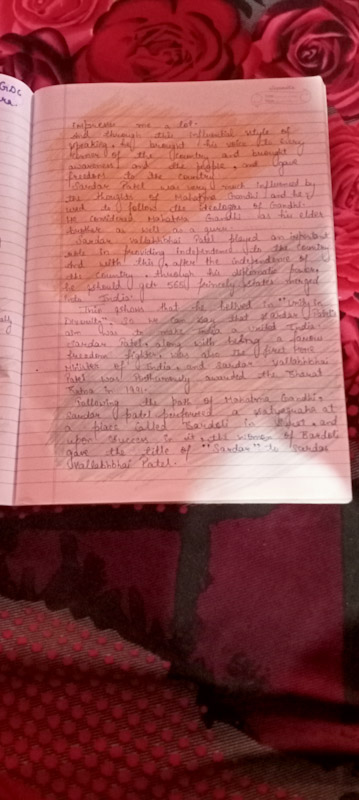 GDC
impresses me a lot.
And through this influential style of
speaking, he brought his voice to every
corner of the country and brought
awareness and the people and gave
freedom to the country.
Sardar Patel was very much influenced by
the thoughts of Mahatma Gandhi and he
used to follow the ideologies of Gandhi.
He considered Mahatma Gandhi as his elder
brother as well as a guru.
Sardar Vallabhbhai Patel played an important
role in providing independence to the country
and with this, after the independence of
the country, through his diplomatic power,
he should get 565 princely states merged
into India.
This shows that he belived in "Unity in
Diversity". So we can say that Sardar Patel's
aim was to make India a United India.
Sardar Patel, along with being a famous
freedom fighter, was also the first Home
Minister of India, and Sardar Vallabhbhai
Patel was Posthumously awarded the Bharat
Ratna in 1991.
Following the path of Mahatma Gandhi,
Sardar Patel performed a Satyagraha at
a place called Bardoli in and
upon success in it, the women of Bardoli
gave the title of "Sardar" to Sardar
Vallabhbhai Patel.